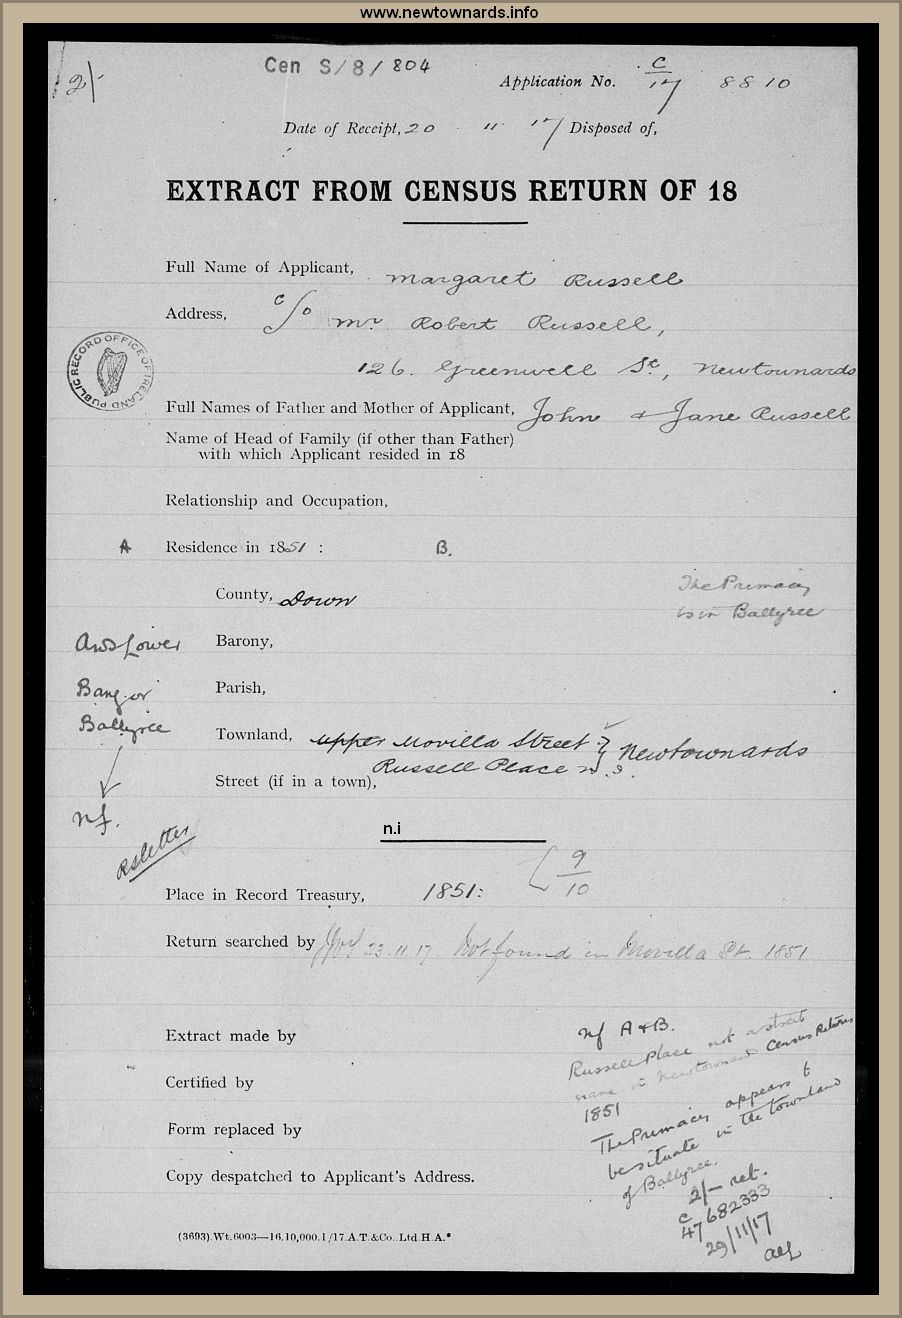 www.newtownards.info
2/-
Cen S/8/804
Application No. C/17 8810
Date of Receipt, 20 11 17 Disposed of,
EXTRACT FROM CENSUS RETURN OF 18
Full Name of Applicant, Margaret Russell
Address, c/o Mr Robert Russell,
126. Greenwell St, Newtownards
PUBLIC RECORD OFFICE OF IRELAND
Full Names of Father and Mother of Applicant, John & Jane Russell
Name of Head of Family (if other than Father)
with which Applicant resided in 18
Relationship and Occupation,
A Residence in 1851 : B.
The Primacy
is in Ballyree
County, Down
Ards Lower Barony,
Bangor Parish,
Ballyree
Townland, upper Movilla Street Newtownards
Russell Place n.s.
Street (if in a town),
nf.
n.i
Rsletter
Place in Record Treasury, 1851: 9/10
Return searched by 23.11.17. Not found in Movilla St. 1851
Extract made by
nf A & B.
Russell Place not a street
name in Newtownards Census Returns
1851
Certified by
The Primacy appears to
be situate in the townland
of Ballyree.
Form replaced by
Copy despatched to Applicant's Address.
2/- ret.
c/47 682333
29/11/17
(3693).Wt.6003—16.10,000.1/17.A.T.&Co.,Ltd.H.A.*